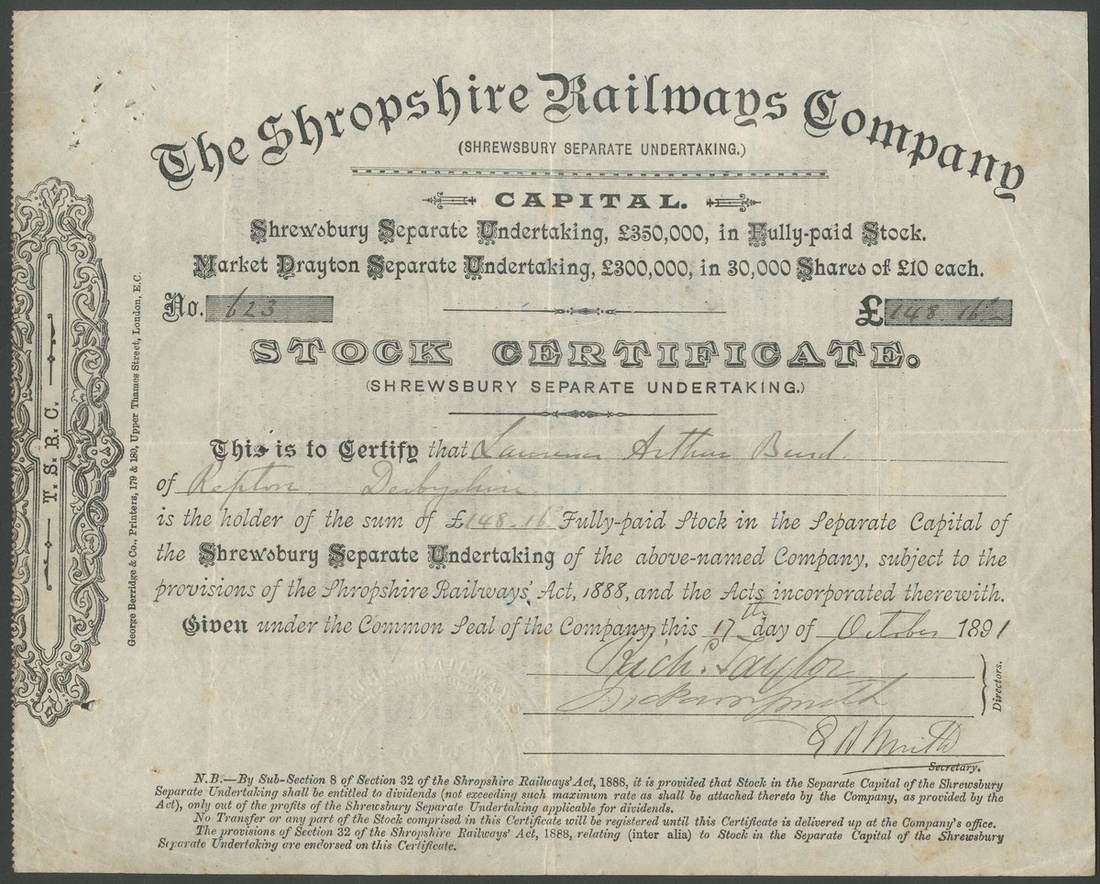 The Shropshire Railways Company
(SHREWSBURY SEPARATE UNDERTAKING.)
CAPITAL.
Shrewsbury Separate Undertaking, £350,000, in Fully-paid Stock.
Market Drayton Separate Undertaking, £300,000, in 30,000 Shares of £10 each.
No. 623
£148 16s
STOCK CERTIFICATE.
(SHREWSBURY SEPARATE UNDERTAKING.)
This is to Certify that Lawrence Arthur Burd.
of Repton Derbyshire
is the holder of the sum of £148-16s Fully-paid Stock in the Separate Capital of
the Shrewsbury Separate Undertaking of the above-named Company, subject to the
provisions of the Shropshire Railways' Act, 1888, and the Acts incorporated therewith.
Given under the Common Seal of the Company, this 17th day of October 1891
Richd. Taylor
Smith
Directors.
Smith
Secretary.
N.B.—By Sub-Section 8 of Section 32 of the Shropshire Railways' Act, 1888, it is provided that Stock in the Separate Capital of the Shrewsbury
Separate Undertaking shall be entitled to dividends (not exceeding such maximum rate as shall be attached thereto by the Company, as provided by the
Act), only out of the profits of the Shrewsbury Separate Undertaking applicable for dividends.
No Transfer or any part of the Stock comprised in this Certificate will be registered until this Certificate is delivered up at the Company's office.
The provisions of Section 32 of the Shropshire Railways' Act, 1888, relating (inter alia) to Stock in the Separate Capital of the Shrewsbury
Separate Undertaking are endorsed on this Certificate.
T. S. R. C.
George Berridge & Co., Printers, 179 & 180, Upper Thames Street, London, E.C.
RAILWAYS